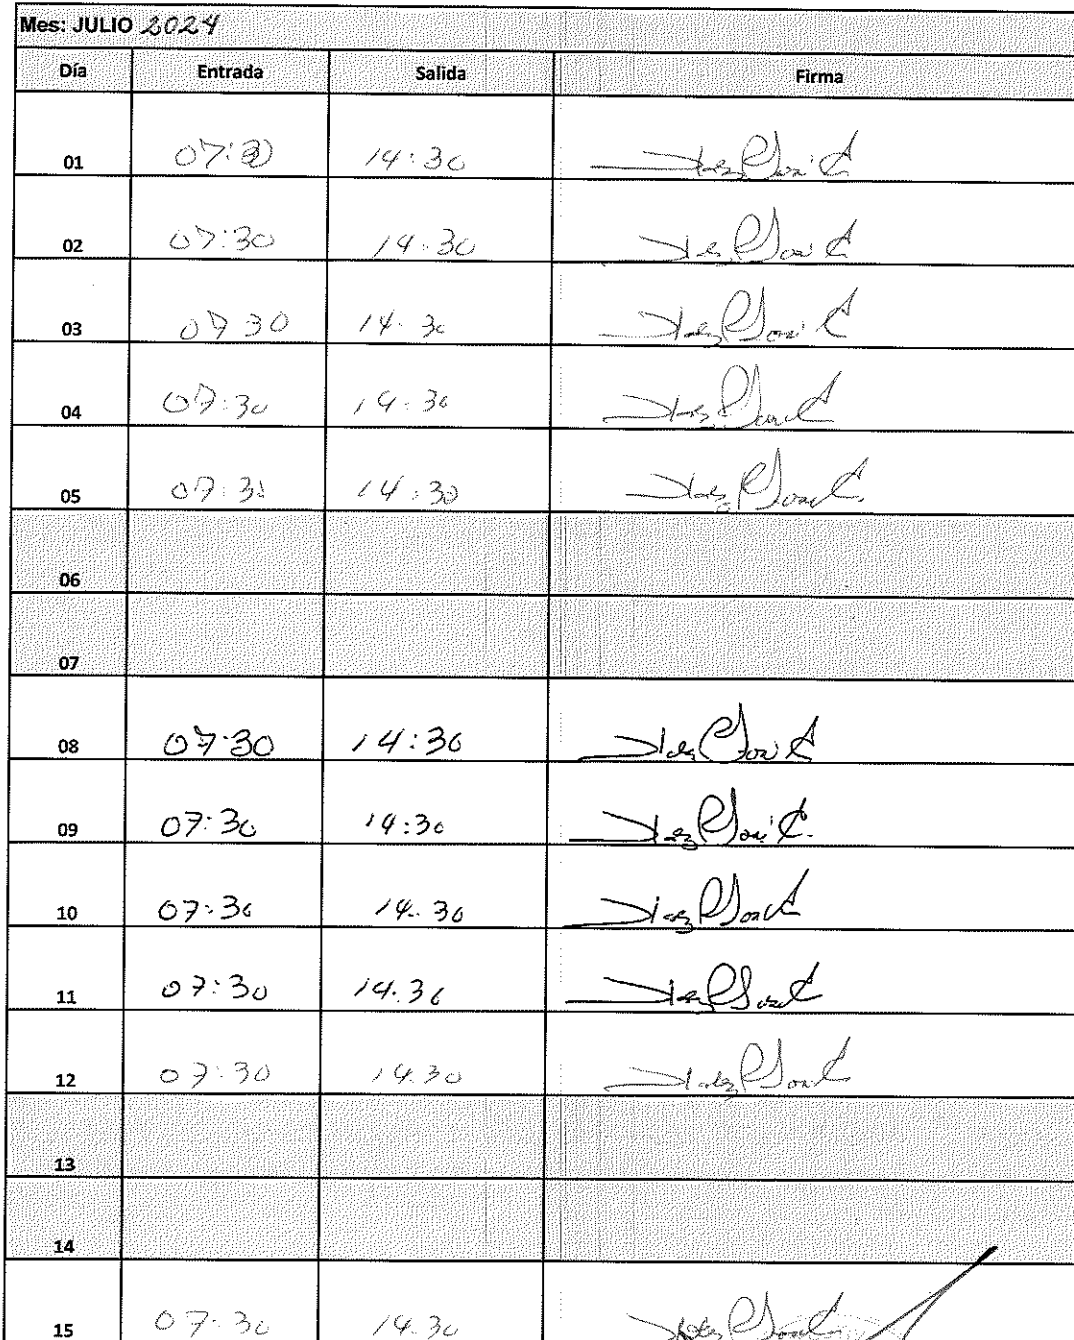 Mes: JULIO 2024
Día Entrada Salida Firma
01 07:30 14:30
02 07:30 14:30
03 07 30 14. 30
04 07:30 14:30
05 07:30 14:30
06
07
08 07:30 14:30
09 07:30 14:30
10 07:30 14. 30
11 07:30 14.30
12 07:30 14.30
13
14
15 07.30 14.30